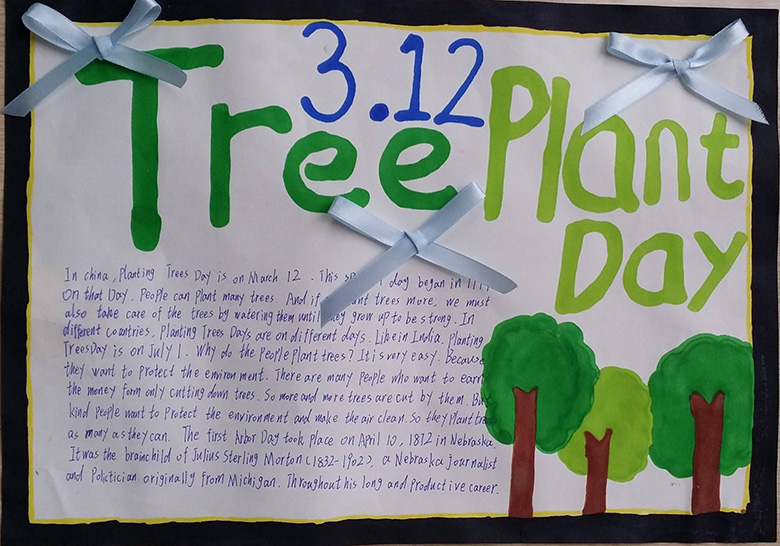 3.12
Tree Plant
Day
In china, Planting Trees Day is on March 12. This day began in
on that Day. People can plant many trees. And if trees more. we must
also take care of the trees by watering them until they grow up to be strong. In
different countries. Planting Trees Days are on different days. Like in India. Planting
Trees Day is on July 1. Why do the People plant trees? It is very easy. Because
they want to protect the environment. There are many People who want to earn
the money form only cutting down trees. So more and more trees are cut by them. But
kind People want to Protect the environment and make the air clean. So they Plant
as many as they can. The first Arbor Day took Place on April 10, 1872 in Nebraska.
It was the brainchild of Julius Sterling Morton (1832-1902), a Nebraska journalist
and Polictician originally from Michigan. Throughout his long and productive career.